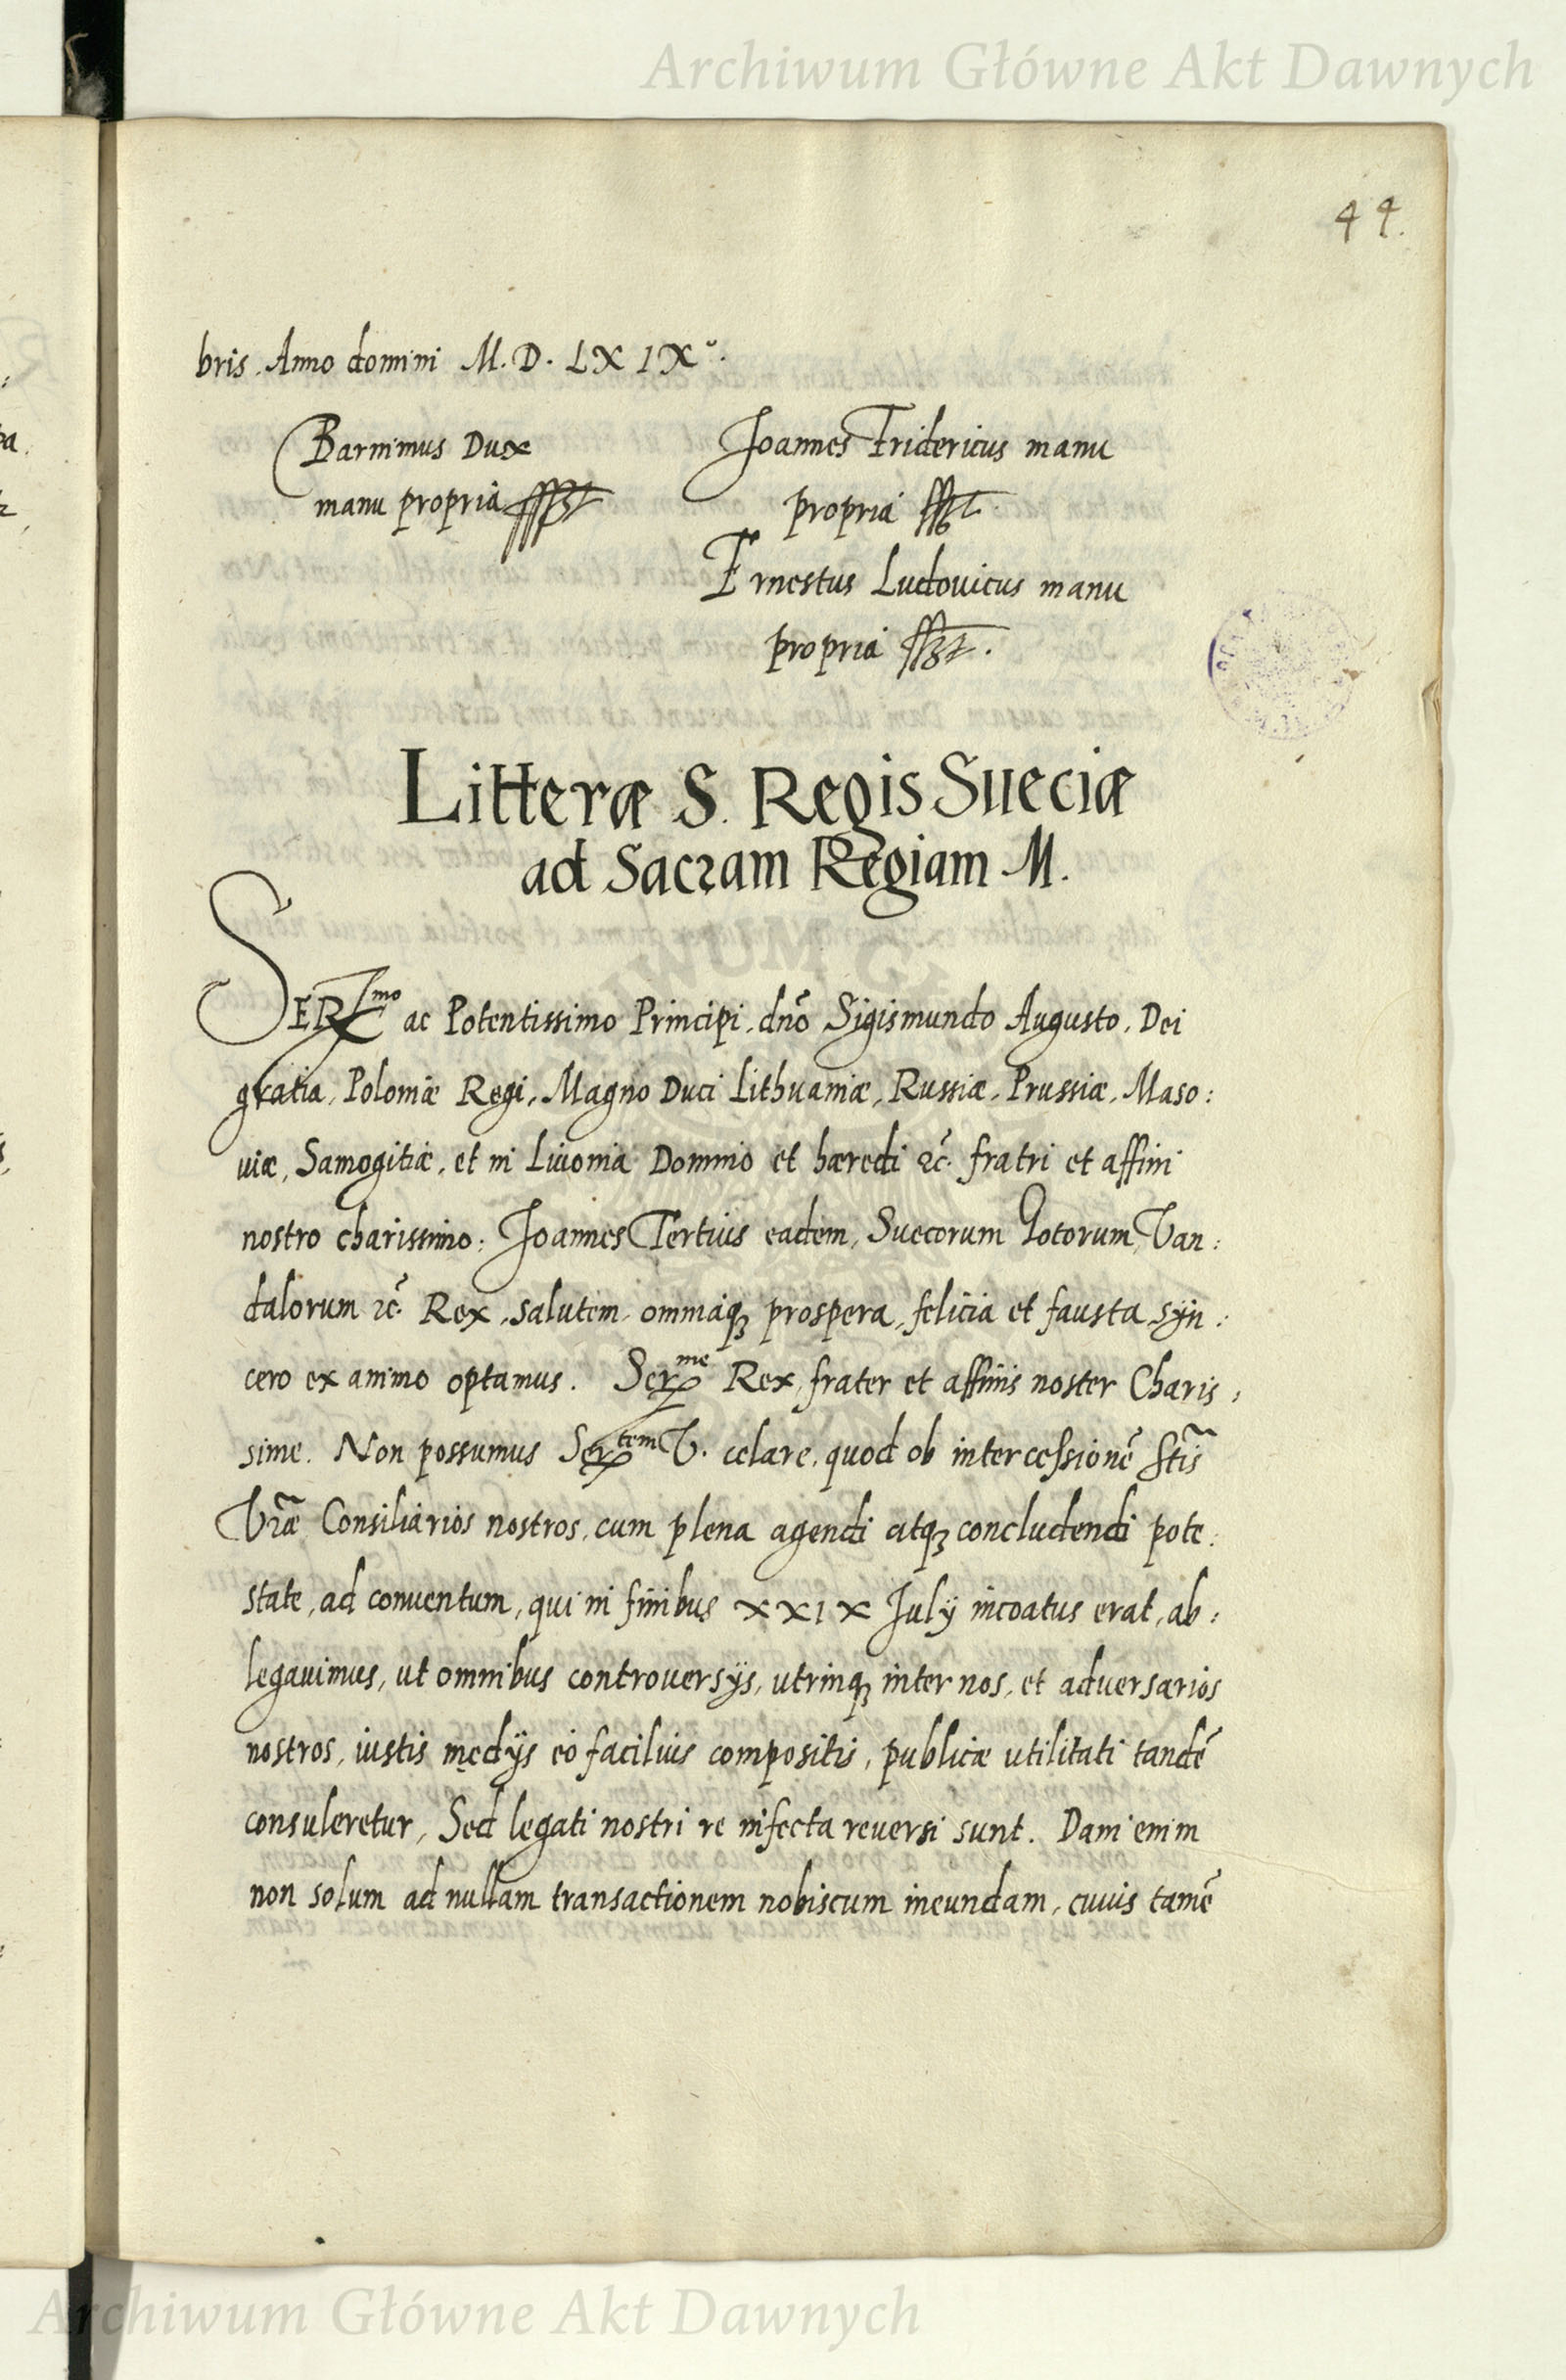 Archiwum Główne Akt Dawnych
44.
bris. Anno domini M. D. LXIXº.
Barnimus Dux
manu propria
Joannes Fridericus manu
propria
Ernestus Ludovicus manu
propria
Litteræ S. Regis Sueciæ
ad Sacram Regiam M.
SERmo ac Potentissimo Principi, dnō Sigismundo Augusto, Dei
gratia, Poloniæ Regi, Magno Duci Lithuaniæ, Russiæ, Prussiæ, Maso:
uiæ, Samogitiæ, et in Liuonia Domino et hæredi ꝛc̄. fratri et affini
nostro charissimo: Joannes Tertius eadem, Suecorum Gotorum Van:
dalorum ꝛc̄. Rex, salutem omniaqꝫ prospera, felicia et fausta, syn:
cero ex animo optamus. Serme Rex, frater et affinis noster Charis,
sime. Non possumus Sertem V. celare, quod ob intercessionē Stis̄
Vrāe Consiliarios nostros, cum plena agendi atqꝫ concludendi pote:
state, ad conuentum, qui in finibus XXIX July incoatus erat, ab:
legauimus, ut omnibus controuersijs, utrinqꝫ inter nos, et aduersarios
nostros, iustis medijs eo facilius compositis, publicæ utilitati tandē
consuleretur, Sed legati nostri re infecta reuersi sunt. Dani enim
non solum ad nullam transactionem nobiscum ineundam, cuius tamē
Archiwum Główne Akt Dawnych